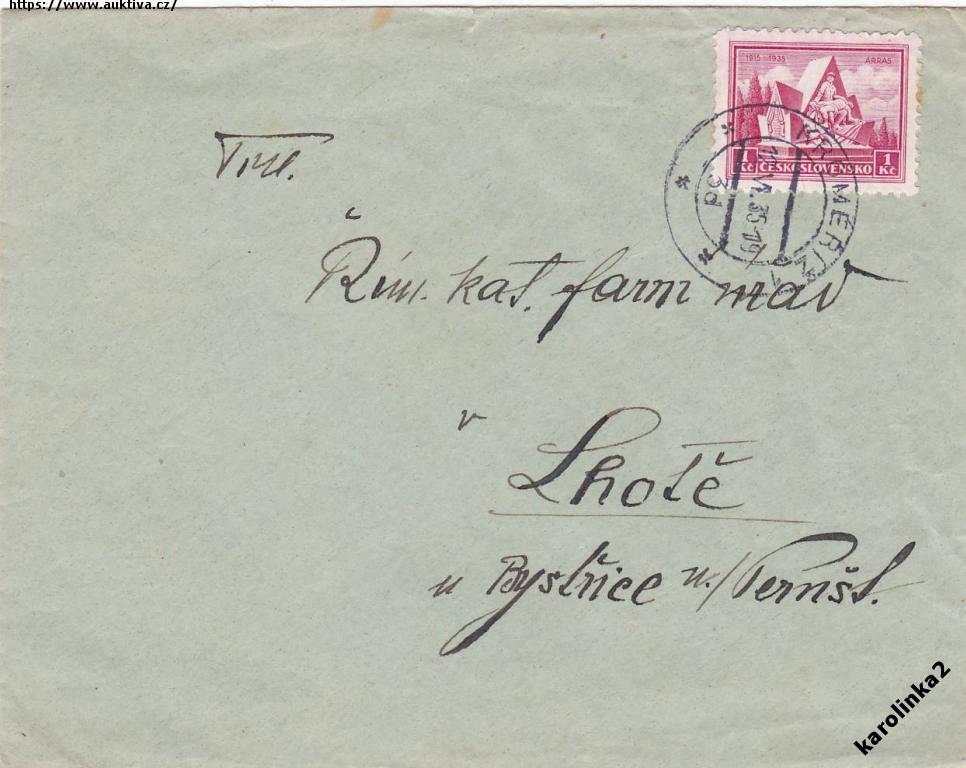 https://www.auktiva.cz/
1915-1935 ARRAS
1 Kč ČESKOSLOVENSKO 1 Kč
KROMĚŘÍŽ 1
VI. 35-19
3d
Řím. kat. farní
v
Lhotě
u Bystřice n./Pernšt.
karolinka2